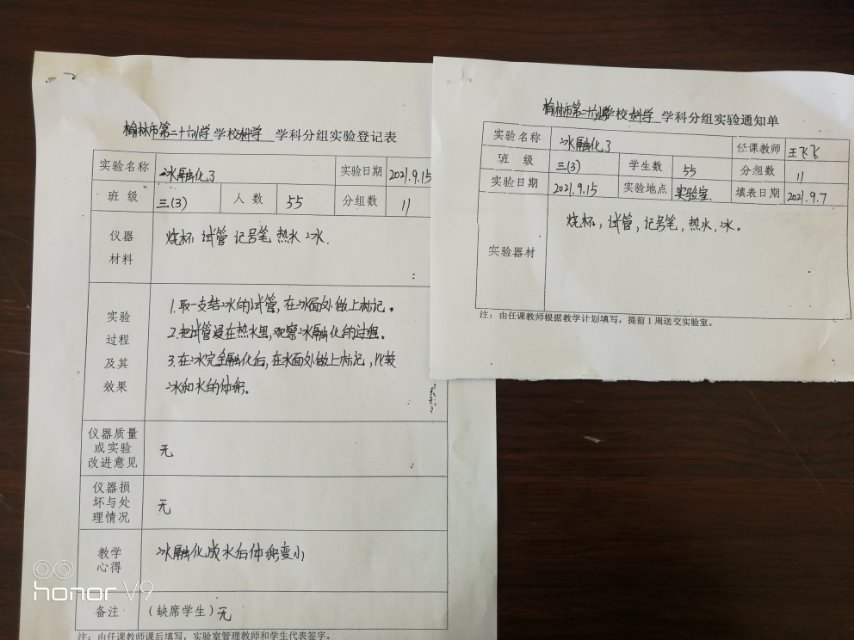 榆林市第二十六小学学校科学 学科分组实验登记表
实验名称 冰融化了 实验日期 2021.9.15
班级 三(3) 人数 55 分组数 11
仪器材料 烧杯 试管 记号笔 热水 冰
实验过程及其效果
1.取一支结冰的试管,在冰面处做上标记。
2.把试管浸在热水里,观察冰融化的过程。
3.在冰完全融化后,在水面处做上标记,比较
冰和水的体积。
仪器质量或实验改进意见 无
仪器损坏与处理情况 无
教学心得 冰融化成水后体积变小
备注 (缺席学生) 无
注:由任课教师课后填写,实验室管理教师和学生代表签字。
榆林市第二十六小学学校科学 学科分组实验通知单
实验名称 冰融化了 任课教师 王飞飞
班级 三(3) 学生数 55 分组数 11
实验日期 2021.9.15 实验地点 实验室 填表日期 2021.9.7
实验器材 烧杯,试管,记号笔,热水,冰。
注:由任课教师根据教学计划填写,提前1周送交实验室。
honor V9